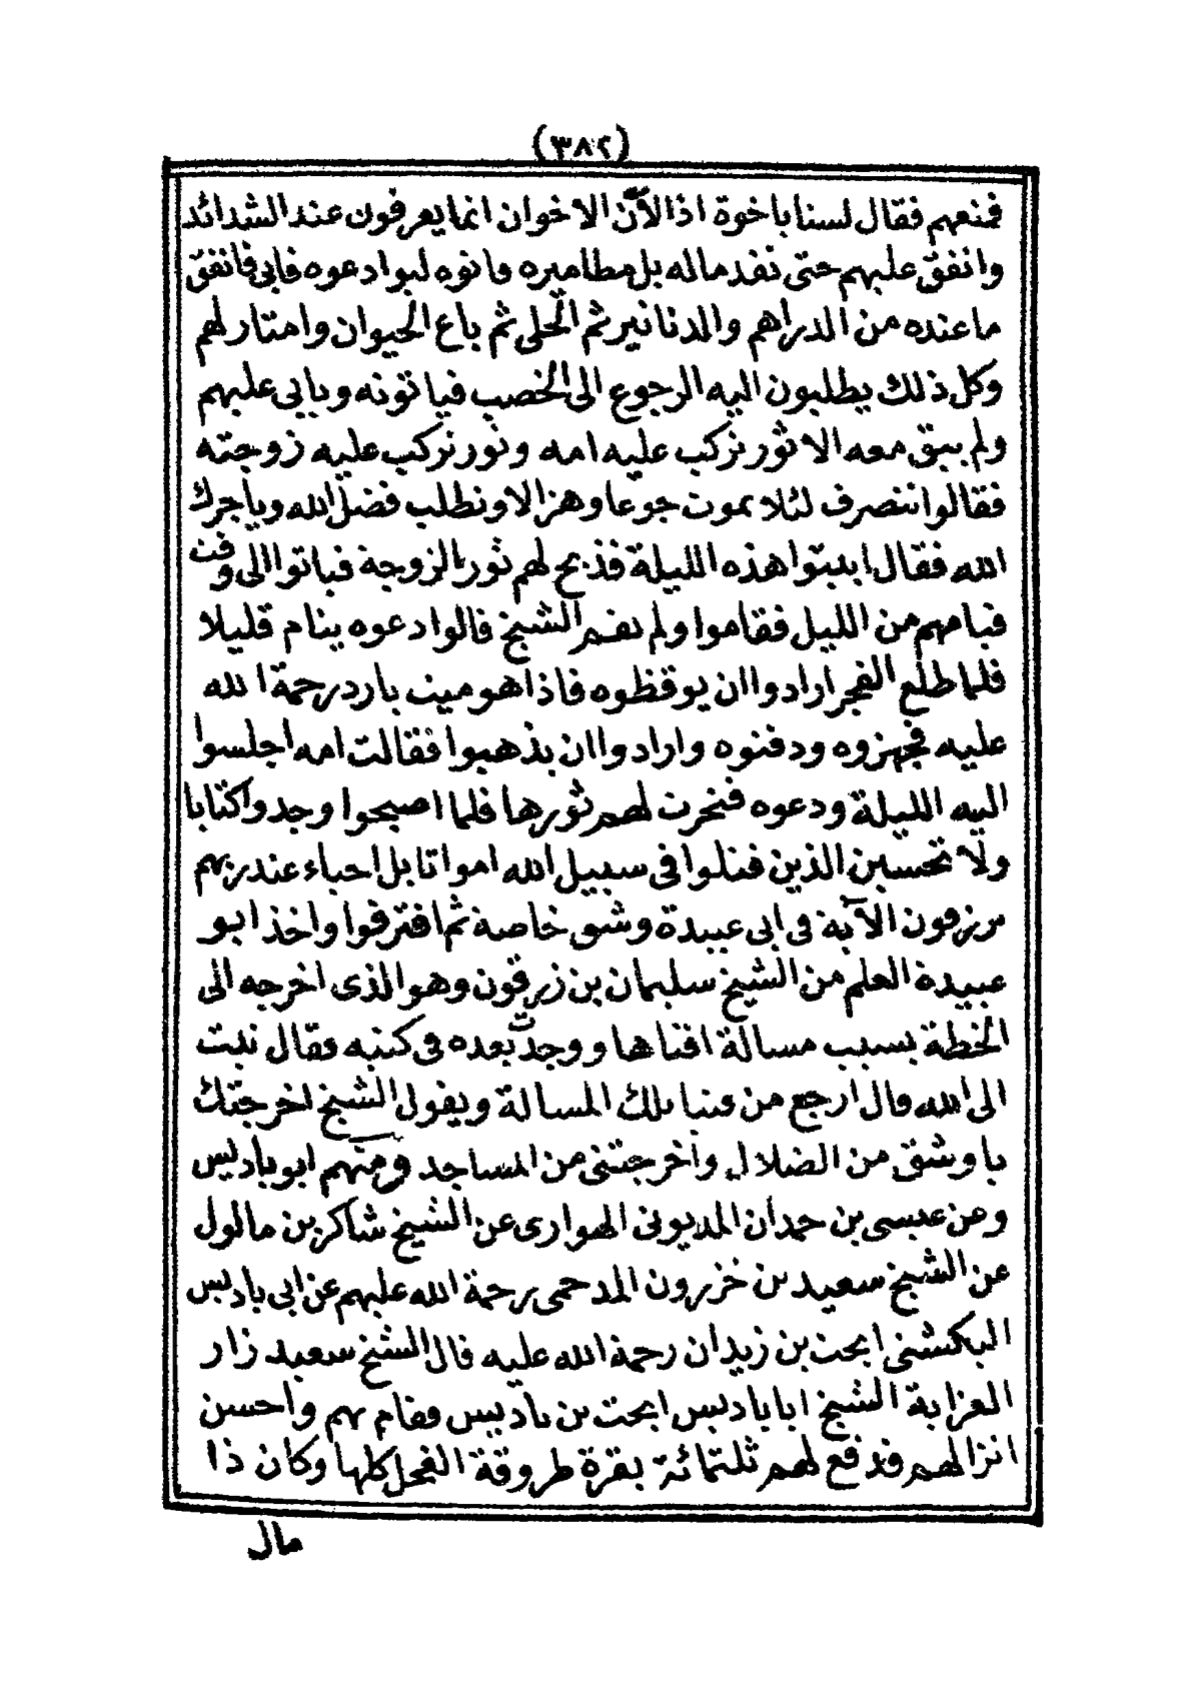 (٣٨٢)
فمنعهم فقال لسنا باخوة اذا الآن الاخوان انما يعرفون عند الشدائد
وانفق عليهم حتى نفد ماله بل مطاميره وانوه لبوا دعوه فابى فانفق
ما عنده من الدراهم والدنانير ثم الحلى ثم باع الحيوان وامتار لهم
وكل ذلك يطلبون اليه الرجوع الى الخصب فياتونه ويابى عليهم
ولم يبق معه الا ثور تركب عليه امه وثور تركب عليه زوجته
فقالوا ننصرف لئلا يموت جوعا وهزالا ونطلب فضل الله وياجرك
الله فقال ابيتوا هذه الليلة فذبح لهم ثور الزوجة فباتوا الى وقت
قيامهم من الليل فقاموا ولم يقم الشيخ قالوا دعوه ينام قليلا
فلما طلع الفجر ارادوا ان يوقظوه فاذا هو ميت بارد رحمة الله
عليه فجهزوه ودفنوه وارادوا ان يذهبوا فقالت امه اجلسوا
اليه الليلة ودعوه فنحرت لهم ثورها فلما اصبحوا وجدوا كتابا
ولا تحسبن الذين قتلوا فى سبيل الله امواتا بل احياء عند ربهم
يرزقون الآية فى ابى عبيدة وشق خاصة ثم افترقوا واخذ ابو
عبيدة العلم من الشيخ سليمان بن زرقون وهو الذى اخرجه الى
الخطة بسبب مسالة افتاها ووجدت بعده فى كتبه فقال تبت
الى الله قال ارجع من فتيا تلك المسالة ويقول الشيخ اخرجتك
يا وشق من الضلال واخرجتنى من المساجد ومنهم ابو باديس
وعن عيسى بن حمدان المديونى الهوارى عن الشيخ شاكر بن مالول
عن الشيخ سعيد بن خزرون المدحمى رحمة الله عليهم عن ابى باديس
اليكشنى ابحت بن زيدان رحمة الله عليه قال الشيخ سعيد زار
العزابة الشيخ ابا باديس ابحت بن باديس فقام بهم واحسن
انزالهم فدفع لهم ثلثمائة بقرة طروقة الفحل كلها وكان ذا
مال